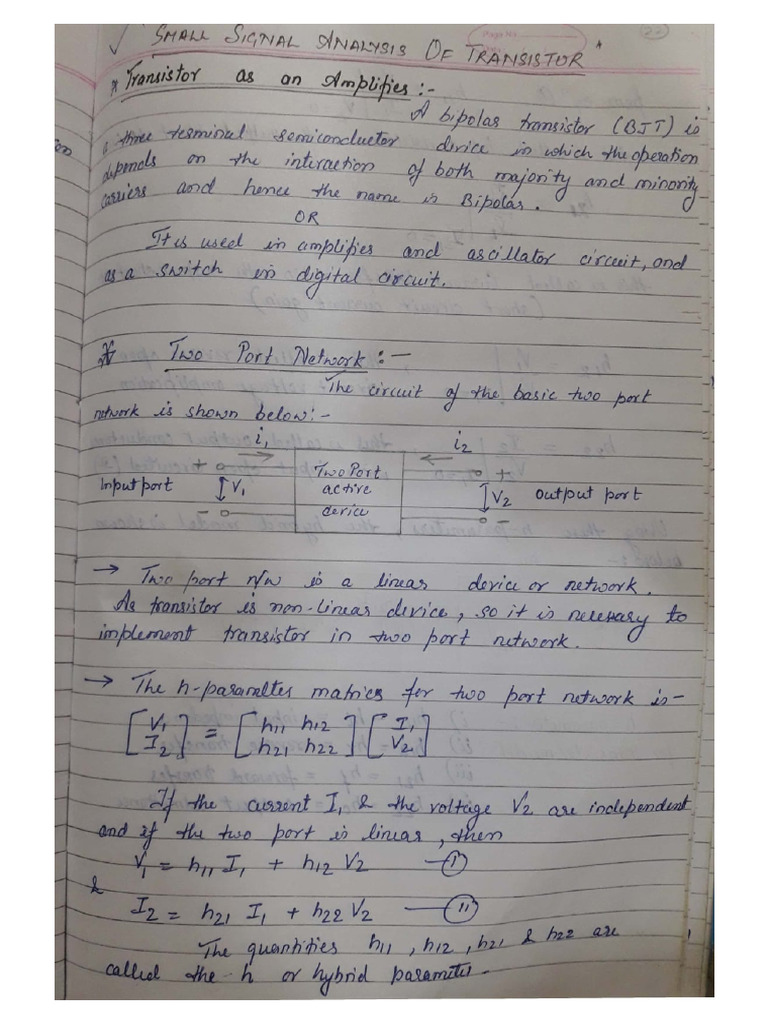 SMALL SIGNAL ANALYSIS OF TRANSISTOR
* Transistor as an Amplifier :-
A bipolar transistor (BJT) is
a three terminal semiconductor divice in which the operation
depends on the interaction of both majority and minority
carriers and hence the name is Bipolar.
OR
It is used in amplifier and ascillator circuit, and
as a switch in digital circuit.
* Two Port Network :-
The circuit of the basic two port
network is shown below:-
i1 i2
+ Two Port +
Input port V1 active V2 output port
- device -
→ Two port n/w is a linear device or network.
As transistor is non-linear device, so it is necessary to
implement transistor in two port network.
→ The h-paramltes matrics for two port network is -
[V1 I2] = [h11 h12 h21 h22] [I1 V2]
If the current I1 & the voltage V2 are independent
and if the two port is linear, then
V1 = h11 I1 + h12 V2 — (i)
&
I2 = h21 I1 + h22 V2 — (ii)
The quantities h11, h12, h21 & h22 are
called the h or hybrid parameter.